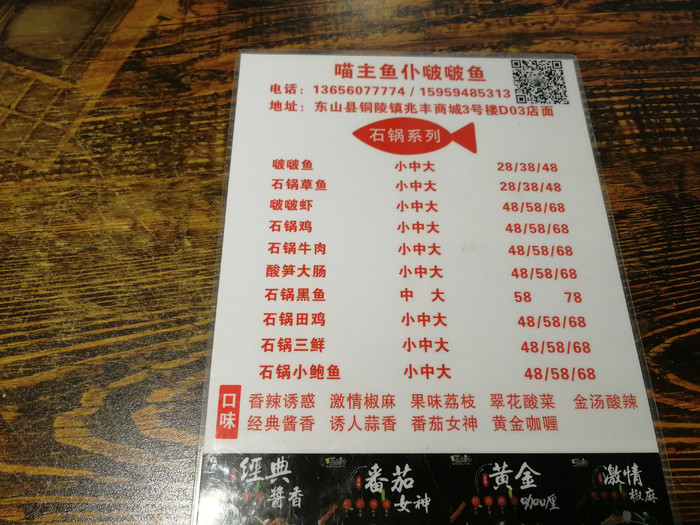 喵主鱼仆啵啵鱼
电话：13656077774 / 15959485313
地址：东山县铜陵镇兆丰商城3号楼D03店面
石锅系列
啵啵鱼 小中大 28/38/48
石锅草鱼 小中大 28/38/48
啵啵虾 小中大 48/58/68
石锅鸡 小中大 48/58/68
石锅牛肉 小中大 48/58/68
酸笋大肠 小中大 48/58/68
石锅黑鱼 中 大 58 78
石锅田鸡 小中大 48/58/68
石锅三鲜 小中大 48/58/68
石锅小鲍鱼 小中大 48/58/68
口味
香辣诱惑 激情椒麻 果味荔枝 翠花酸菜 金汤酸辣
经典酱香 诱人蒜香 番茄女神 黄金咖喱
經典 番茄 黄金 激情
酱香 女神 咖喱 椒麻